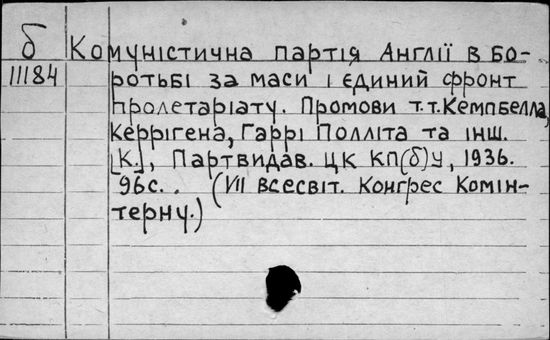 б Комуністична партія Англії в бо-
11184 ротьбі за маси і єдиний фронт
пролетаріату. Промови т.т. Кемпбелла,
Керрігена, Гаррі Полліта та інш.
[К.], Партвидав. ЦК КП(б)У, 1936.
96с. . (VII всесвіт. Конгрес Комін-
терну.)